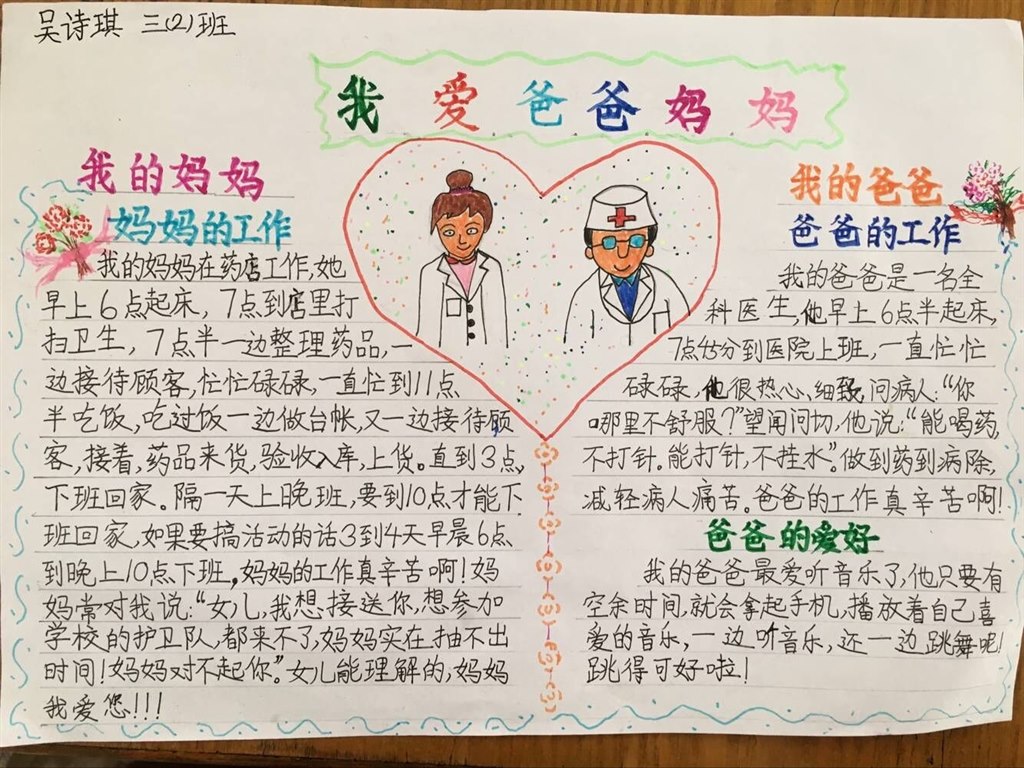 吴诗琪 三(2)班
我爱爸爸妈妈
我的妈妈
妈妈的工作
我的妈妈在药店工作,她
早上6点起床,7点到店里打
扫卫生,7点半一边整理药品,一
边接待顾客,忙忙碌碌,一直忙到11点
半吃饭,吃过饭一边做台帐,又一边接待顾
客,接着,药品来货,验收入库,上货。直到3点,
下班回家。隔一天上晚班,要到10点才能下
班回家,如果要搞活动的话3到4天早晨6点
到晚上10点下班,妈妈的工作真辛苦啊!妈
妈常对我说:“女儿,我想接送你,想参加
学校的护卫队,都来不了,妈妈实在抽不出
时间!妈妈对不起你。”女儿能理解的,妈妈
我爱您!!!
我的爸爸
爸爸的工作
我的爸爸是一名全
科医生,他早上6点半起床,
7点45分到医院上班,一直忙忙
碌碌,他很热心,细致问病人:“你
哪里不舒服?”望闻问切,他说:“能喝药,
不打针。能打针,不挂水”。做到药到病除,
减轻病人痛苦。爸爸的工作真辛苦啊!
爸爸的爱好
我的爸爸最爱听音乐了,他只要有
空余时间,就会拿起手机,播放着自己喜
爱的音乐,一边听音乐,还一边跳舞呢!
跳得可好啦!